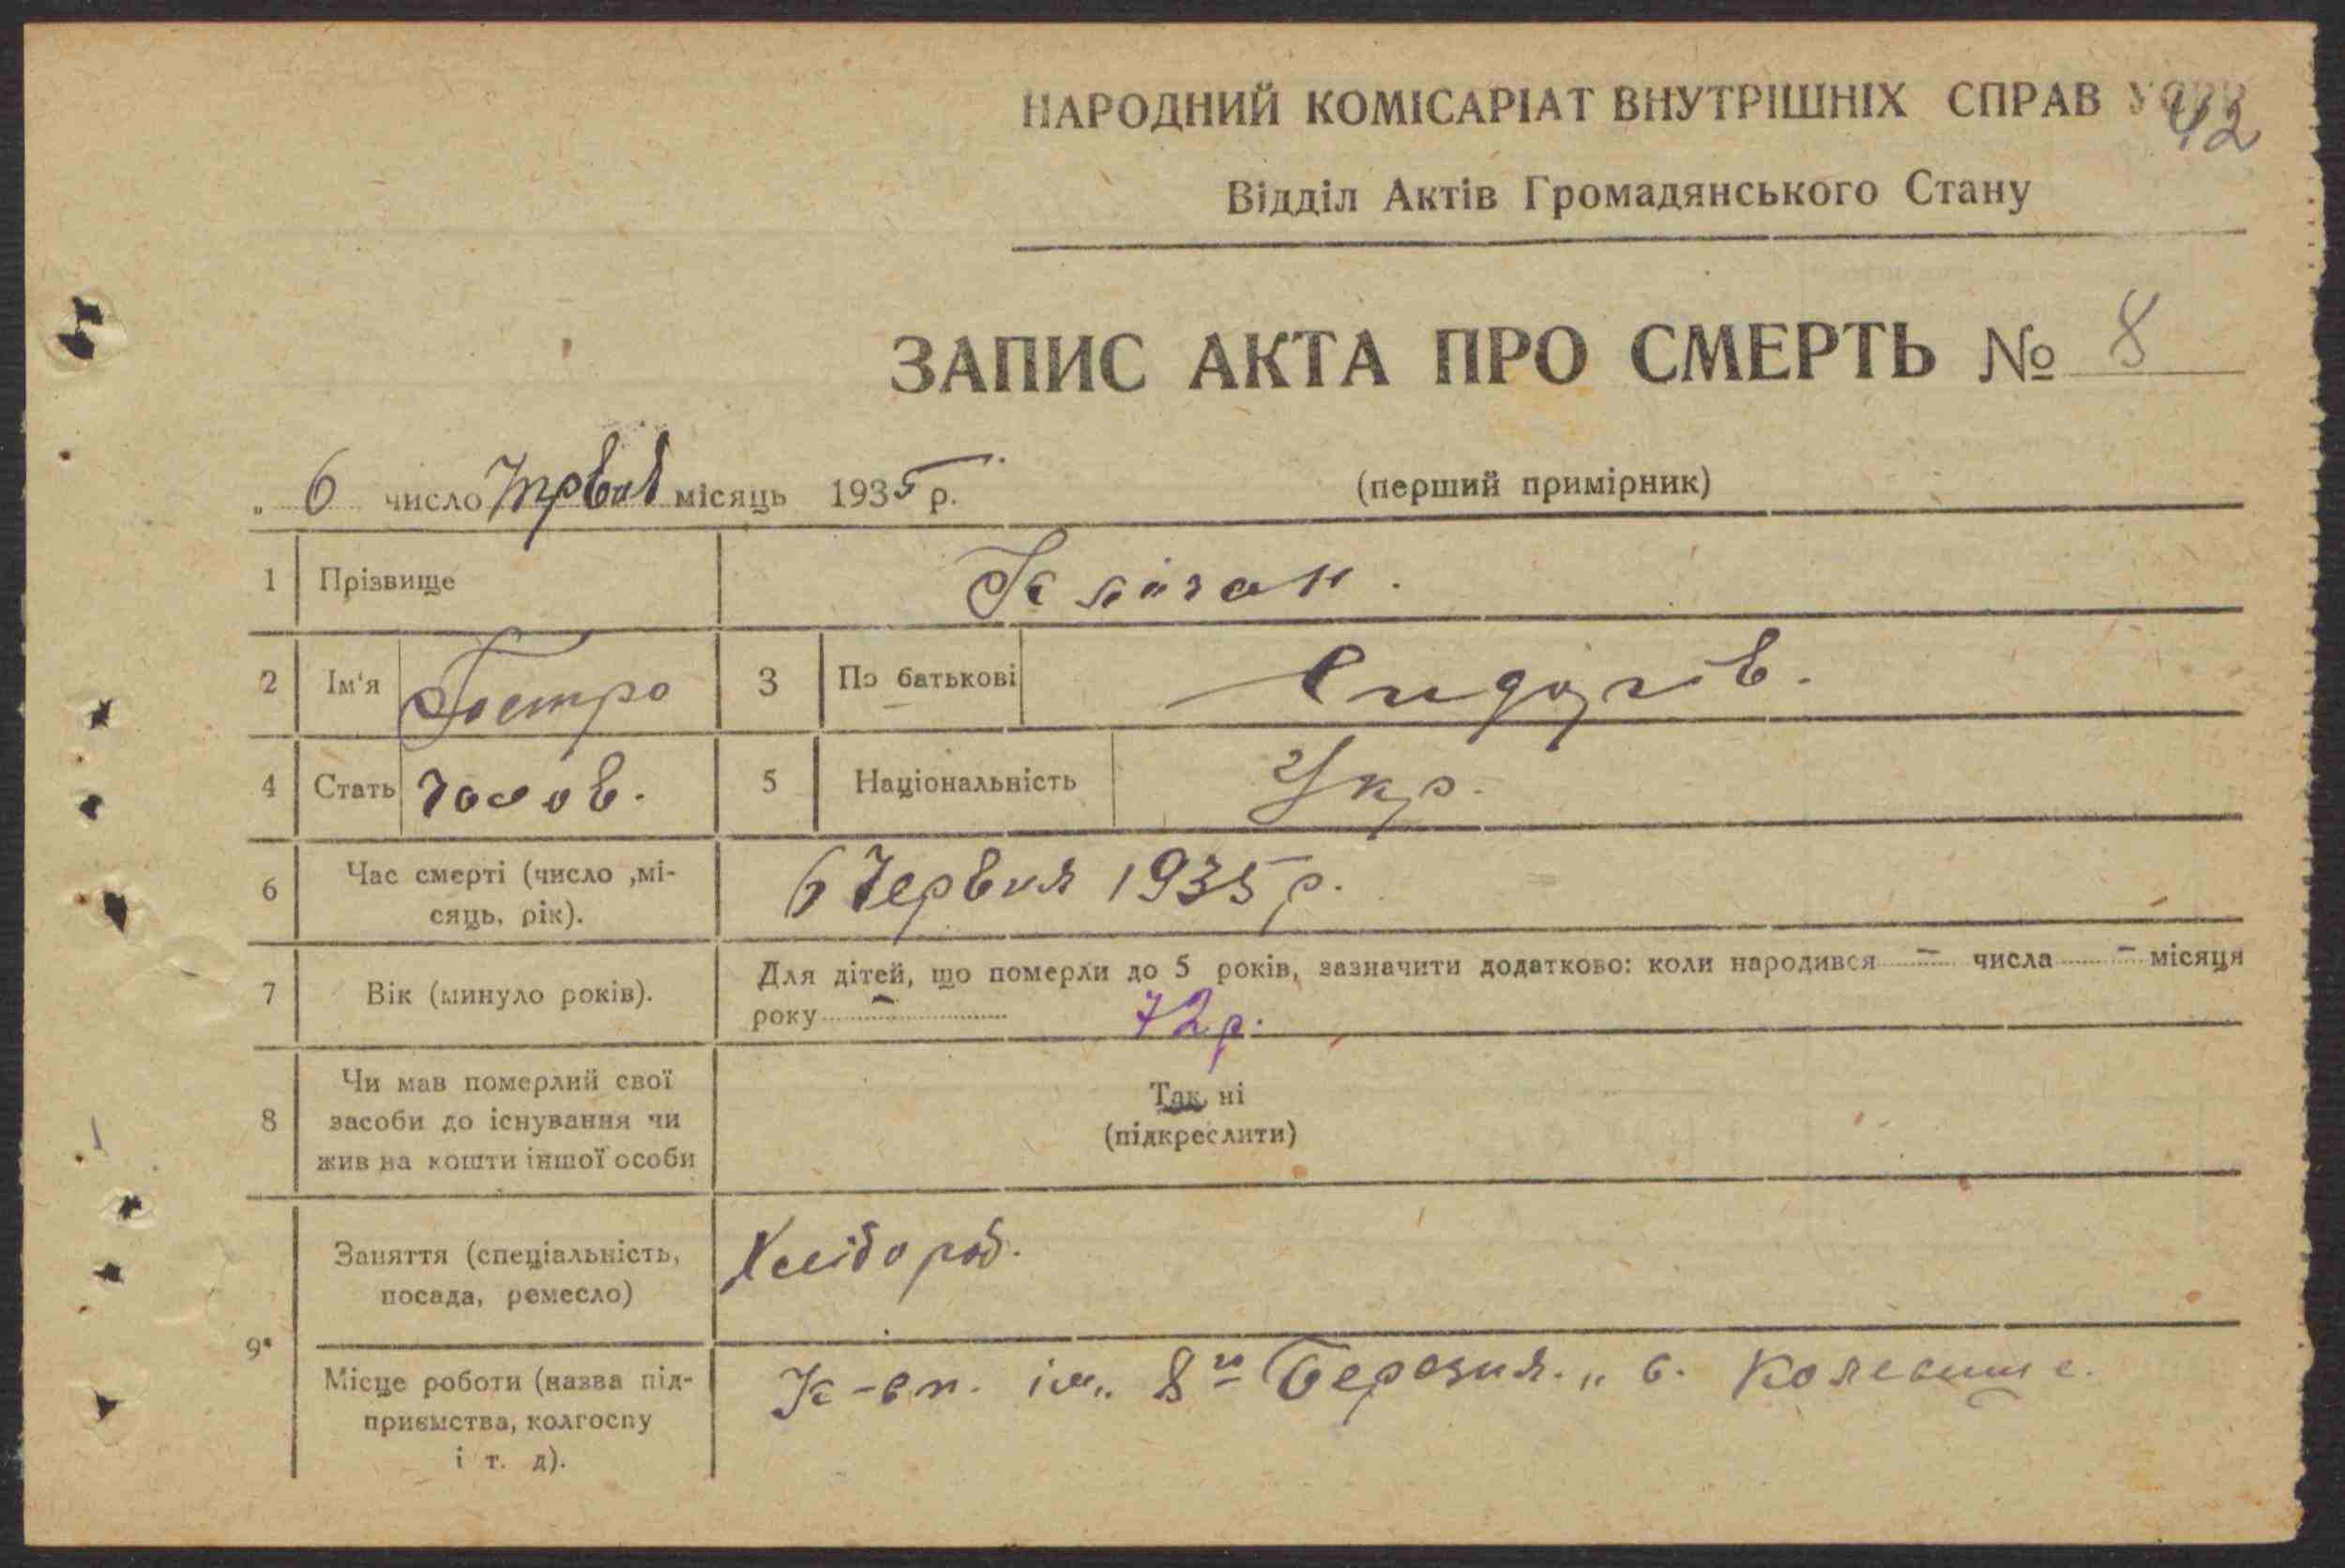 НАРОДНИЙ КОМІСАРІАТ ВНУТРІШНІХ СПРАВ УСРР
42
Відділ Актів Громадянського Стану
ЗАПИС АКТА ПРО СМЕРТЬ № 8
„ 6 число місяць 1935 р. (перший примірник)
1 Прізвище
2 Ім'я Петро 3 По батькові
4 Стать чолов. 5 Національність Укр.
6 Час смерті (число ,мі-
сяць, рік). 6 Червня 1935 р.
7 Вік (минуло років). Для дітей, що померли до 5 років, зазначити додатково: коли народився — числа — місяця
року — 72 р.
8 Чи мав померлий свої
засоби до існування чи
жив на кошти іншої особи
Так, ні
(підкреслити)
9* Заняття (спеціальність,
посада, ремесло) Хлібороб.
Місце роботи (назва під-
приємства, колгоспу
і т. д).
К-сп. ім. „8го Березня." с.